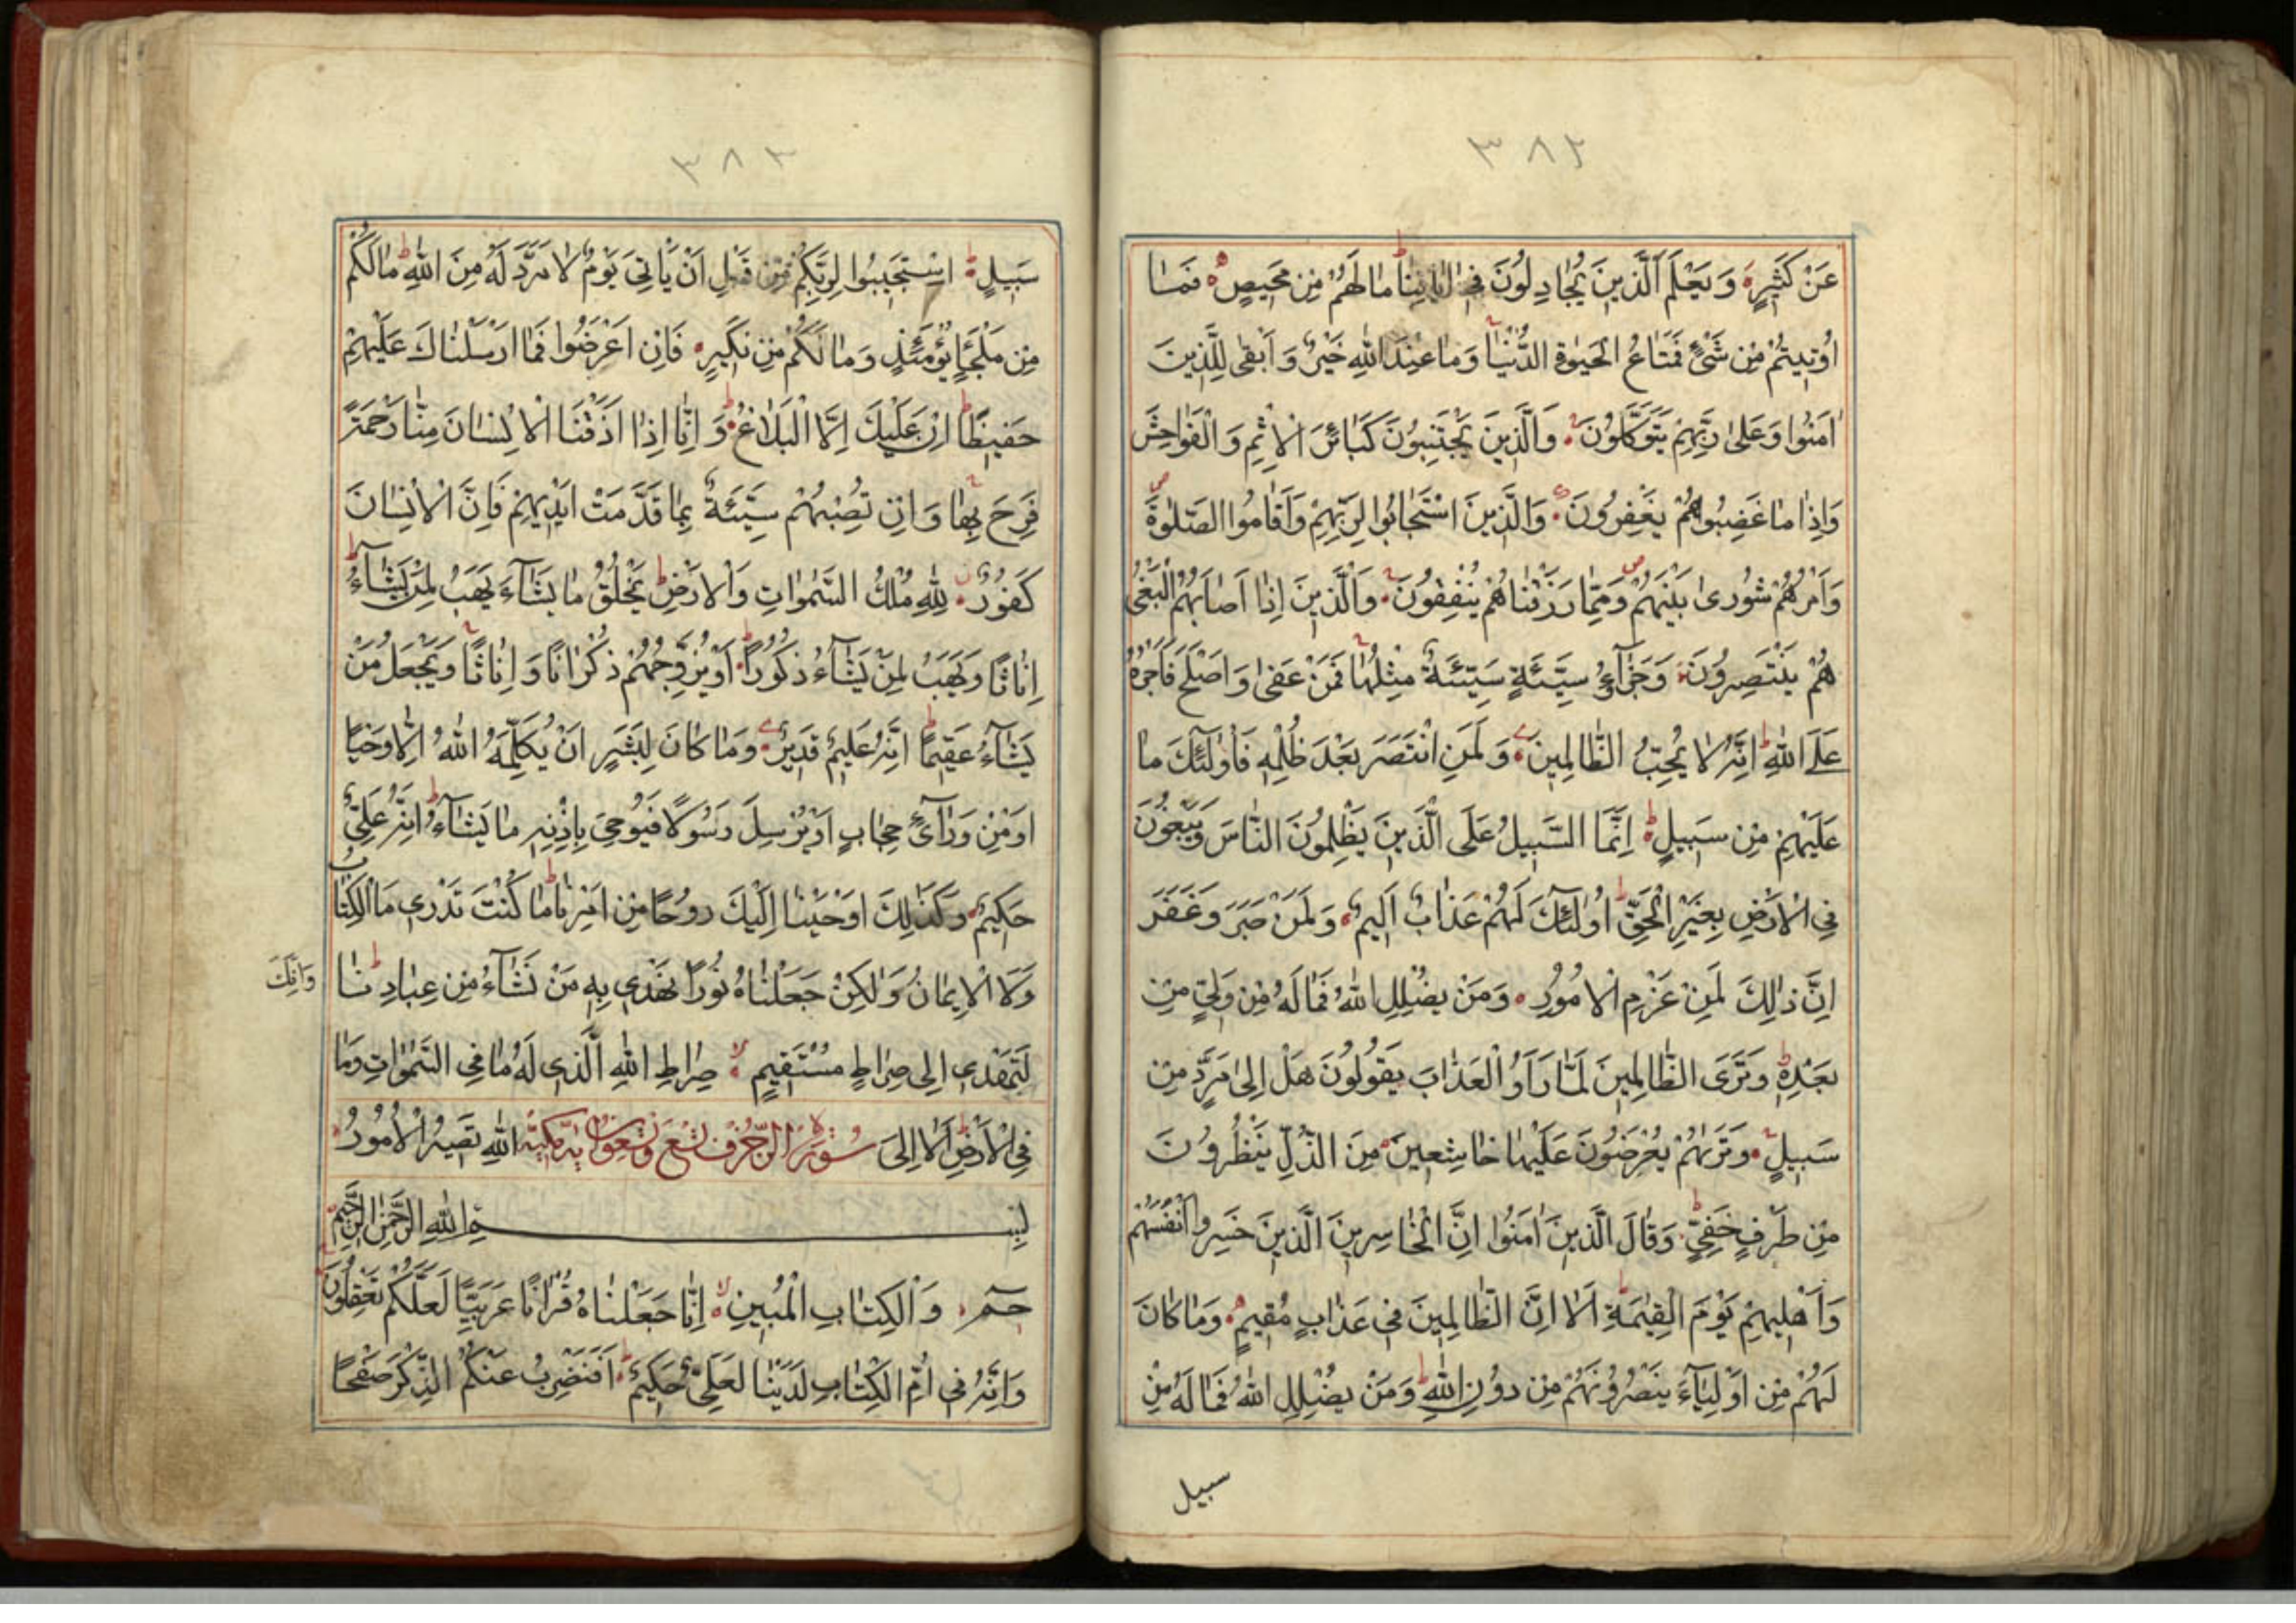 ٣٨٢
عَنْ كَثِيرٍ وَيَعْلَمَ الَّذِينَ يُجَادِلُونَ فِي اٰيَاتِنَا مَا لَهُمْ مِنْ مَحِيصٍ فَمَا
اُوتِيتُمْ مِنْ شَيْءٍ فَمَتَاعُ الْحَيٰوةِ الدُّنْيَا وَمَا عِنْدَ اللهِ خَيْرٌ وَاَبْقٰى لِلَّذِينَ
اٰمَنُوا وَعَلٰى رَبِّهِمْ يَتَوَكَّلُونَ وَالَّذِينَ يَجْتَنِبُونَ كَبَائِرَ الْاِثْمِ وَالْفَوَاحِشَ
وَاِذَا مَا غَضِبُوا هُمْ يَغْفِرُونَ وَالَّذِينَ اسْتَجَابُوا لِرَبِّهِمْ وَاَقَامُوا الصَّلٰوةَ
وَاَمْرُهُمْ شُورٰى بَيْنَهُمْ وَمِمَّا رَزَقْنَاهُمْ يُنْفِقُونَ وَالَّذِينَ اِذَا اَصَابَهُمُ الْبَغْيُ
هُمْ يَنْتَصِرُونَ وَجَزٰٓؤُا سَيِّئَةٍ سَيِّئَةٌ مِثْلُهَا فَمَنْ عَفٰى وَاَصْلَحَ فَاَجْرُهُ
عَلَى اللهِ اِنَّهُ لَا يُحِبُّ الظَّالِمِينَ وَلَمَنِ انْتَصَرَ بَعْدَ ظُلْمِهِ فَاُولٰٓئِكَ مَا
عَلَيْهِمْ مِنْ سَبِيلٍ اِنَّمَا السَّبِيلُ عَلَى الَّذِينَ يَظْلِمُونَ النَّاسَ وَيَبْغُونَ
فِي الْاَرْضِ بِغَيْرِ الْحَقِّ اُولٰٓئِكَ لَهُمْ عَذَابٌ اَلِيمٌ وَلَمَنْ صَبَرَ وَغَفَرَ
اِنَّ ذٰلِكَ لَمِنْ عَزْمِ الْاُمُورِ وَمَنْ يُضْلِلِ اللهُ فَمَا لَهُ مِنْ وَلِيٍّ مِنْ
بَعْدِهِ وَتَرَى الظَّالِمِينَ لَمَّا رَاَوُا الْعَذَابَ يَقُولُونَ هَلْ اِلٰى مَرَدٍّ مِنْ
سَبِيلٍ وَتَرٰيهُمْ يُعْرَضُونَ عَلَيْهَا خَاشِعِينَ مِنَ الذُّلِّ يَنْظُرُونَ
مِنْ طَرْفٍ خَفِيٍّ وَقَالَ الَّذِينَ اٰمَنُوا اِنَّ الْخَاسِرِينَ الَّذِينَ خَسِرُوا اَنْفُسَهُمْ
وَاَهْلِيهِمْ يَوْمَ الْقِيٰمَةِ اَلَا اِنَّ الظَّالِمِينَ فِي عَذَابٍ مُقِيمٍ وَمَا كَانَ
لَهُمْ مِنْ اَوْلِيَآءَ يَنْصُرُونَهُمْ مِنْ دُونِ اللهِ وَمَنْ يُضْلِلِ اللهُ فَمَا لَهُ مِنْ
سبيل
٣٨٣
سَبِيلٍ اِسْتَجِيبُوا لِرَبِّكُمْ مِنْ قَبْلِ اَنْ يَاْتِيَ يَوْمٌ لَا مَرَدَّ لَهُ مِنَ اللهِ مَا لَكُمْ
مِنْ مَلْجَاٍ يَوْمَئِذٍ وَمَا لَكُمْ مِنْ نَكِيرٍ فَاِنْ اَعْرَضُوا فَمَا اَرْسَلْنَاكَ عَلَيْهِمْ
حَفِيظًا اِنْ عَلَيْكَ اِلَّا الْبَلَاغُ وَاِنَّا اِذَا اَذَقْنَا الْاِنْسَانَ مِنَّا رَحْمَةً
فَرِحَ بِهَا وَاِنْ تُصِبْهُمْ سَيِّئَةٌ بِمَا قَدَّمَتْ اَيْدِيهِمْ فَاِنَّ الْاِنْسَانَ
كَفُورٌ لِلّٰهِ مُلْكُ السَّمٰوَاتِ وَالْاَرْضِ يَخْلُقُ مَا يَشَآءُ يَهَبُ لِمَنْ يَشَآءُ
اِنَاثًا وَيَهَبُ لِمَنْ يَشَآءُ ذُكُورًا اَوْ يُزَوِّجُهُمْ ذُكْرَانًا وَاِنَاثًا وَيَجْعَلُ مَنْ
يَشَآءُ عَقِيمًا اِنَّهُ عَلِيمٌ قَدِيرٌ وَمَا كَانَ لِبَشَرٍ اَنْ يُكَلِّمَهُ اللهُ اِلَّا وَحْيًا
اَوْ مِنْ وَرَآئِ حِجَابٍ اَوْ يُرْسِلَ رَسُولًا فَيُوحِيَ بِاِذْنِهِ مَا يَشَآءُ اِنَّهُ عَلِيٌّ
حَكِيمٌ وَكَذٰلِكَ اَوْحَيْنَا اِلَيْكَ رُوحًا مِنْ اَمْرِنَا مَا كُنْتَ تَدْرِي مَا الْكِتَابُ
وَلَا الْاِيمَانُ وَلٰكِنْ جَعَلْنَاهُ نُورًا نَهْدِي بِهِ مَنْ نَشَآءُ مِنْ عِبَادِنَا
وَاِنَّكَ
لَتَهْدِي اِلٰى صِرَاطٍ مُسْتَقِيمٍ صِرَاطِ اللهِ الَّذِي لَهُ مَا فِي السَّمٰوَاتِ وَمَا
فِي الْاَرْضِ اَلَا اِلَى سُورَةُ الزُّخْرُفِ تسع وثمانون اية مكية اللهِ تَصِيرُ الْاُمُورُ
بِسْمِ اللهِ الرَّحْمٰنِ الرَّحِيمِ
حٰمٓ وَالْكِتَابِ الْمُبِينِ اِنَّا جَعَلْنَاهُ قُرْاٰنًا عَرَبِيًّا لَعَلَّكُمْ تَعْقِلُونَ
وَاِنَّهُ فِي اُمِّ الْكِتَابِ لَدَيْنَا لَعَلِيٌّ حَكِيمٌ اَفَنَضْرِبُ عَنْكُمُ الذِّكْرَ صَفْحًا